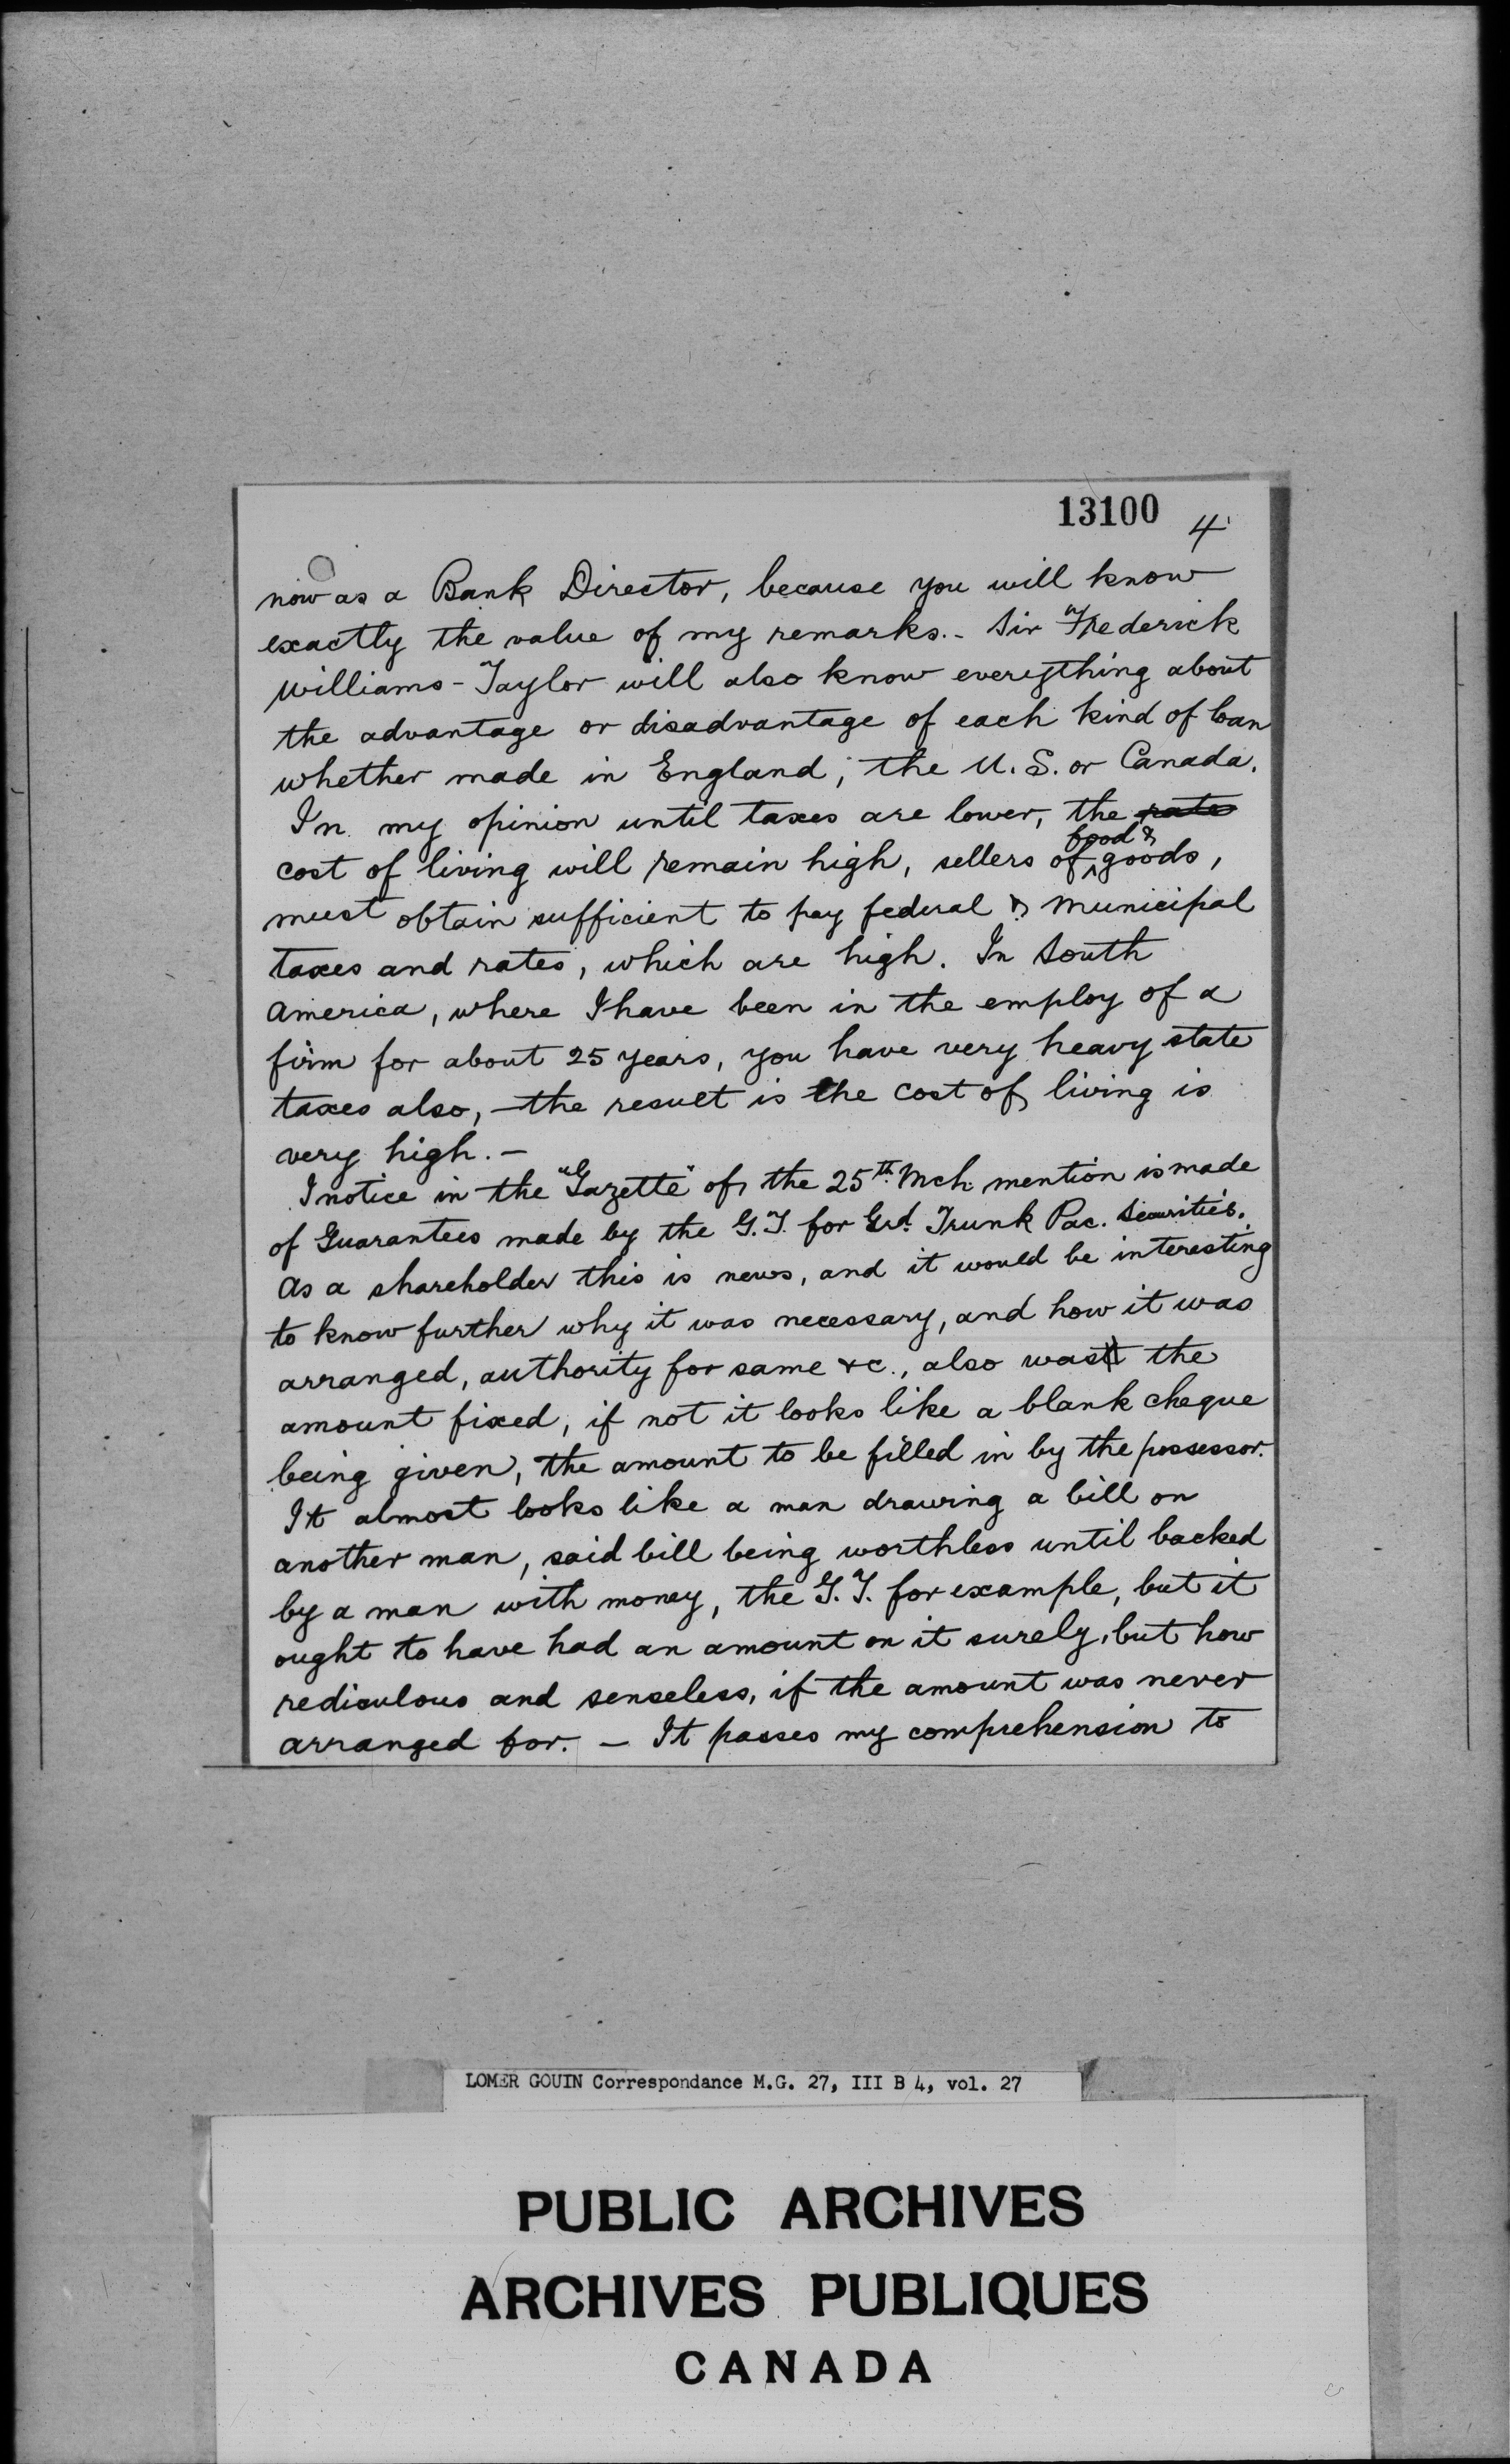 13100
4
now as a Bank Director, because you will know
exactly the value of my remarks.- Sir Frederick
Williams-Taylor will also know everything about
the advantage or disadvantage of each kind of loan
whether made in England, the U.S. or Canada.
In my opinion until taxes are lower, the rate
food &
cost of living will remain high, sellers of goods,
must obtain sufficient to pay federal & municipal
taxes and rates, which are high. In South
America, where I have been in the employ of a
firm for about 25 years, you have very heavy state
taxes also, - the result is the cost of living is
very high. -
I notice in the "Gazette" of the 25th Mch mention is made
of Guarantees made by the G.T. for Grd. Trunk Pac. Securities.
As a shareholder this is news, and it would be interesting
to know further why it was necessary, and how it was
arranged, authority for same &c., also was the
amount fixed, if not it looks like a blank cheque
being given, the amount to be filled in by the possessor.
It almost looks like a man drawing a bill on
another man, said bill being worthless until backed
by a man with money, the G.T. for example, but it
ought to have had an amount on it surely, but how
rediculous and senseless, if the amount was never
arranged for. - It passes my comprehension to
LOMER GOUIN Correspondance M.G. 27, III B 4, vol. 27
PUBLIC ARCHIVES
ARCHIVES PUBLIQUES
CANADA